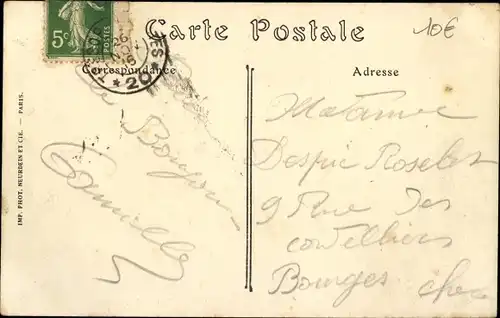 Carte Postale
10€
5c
Correspondance
Adresse
20
Bonjour
Camille
Madame
Despic Roselet
9 Rue des
cordelliers
Bourges Cher
IMP. PHOT. NEURDEIN ET CIE. — PARIS.